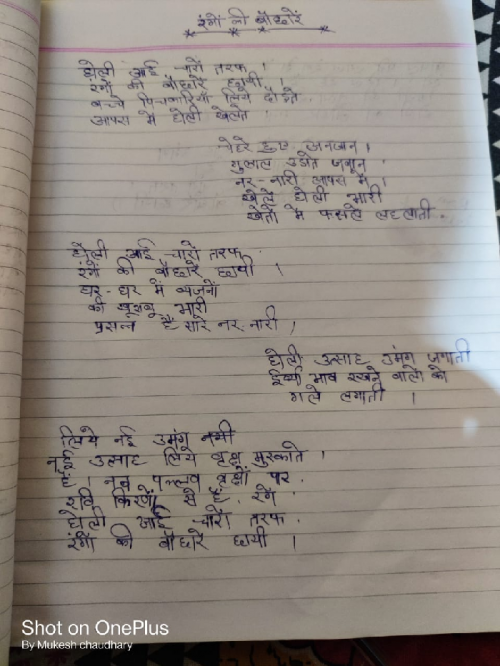 रंगों की बौछारें
होली आई चारों तरफ ।
रंगों की बौछारें छायी ।
बच्चे पिचकारियां लिये दौड़ते
आपस में होली खेलते ।
चेहरे हुए अनजान ।
गुलाल उड़ाते जवान
नर-नारी आपस में ।
खेले होली भारी
खेतों में फसलें लहलाती .
होली आई चारों तरफ
रंगों की बौछारें छायी ।
घर-घर में व्यंजनों
की खुशबू भारी
प्रसन्न हैं सारे नर-नारी ।
होली उत्साह उमंग जगाती
ईर्ष्या भाव रखने वालों को
गले लगाती ।
लिये नई उमंग नयी
नई उत्साह लिये वृक्ष मुस्काते ।
है। नव पल्लव वृक्षों पर .
रवि किरणों से है रंगे
होली आई चारों तरफ .
रंगों की बौछारें छायी ।
Shot on OnePlus
By Mukesh chaudhary